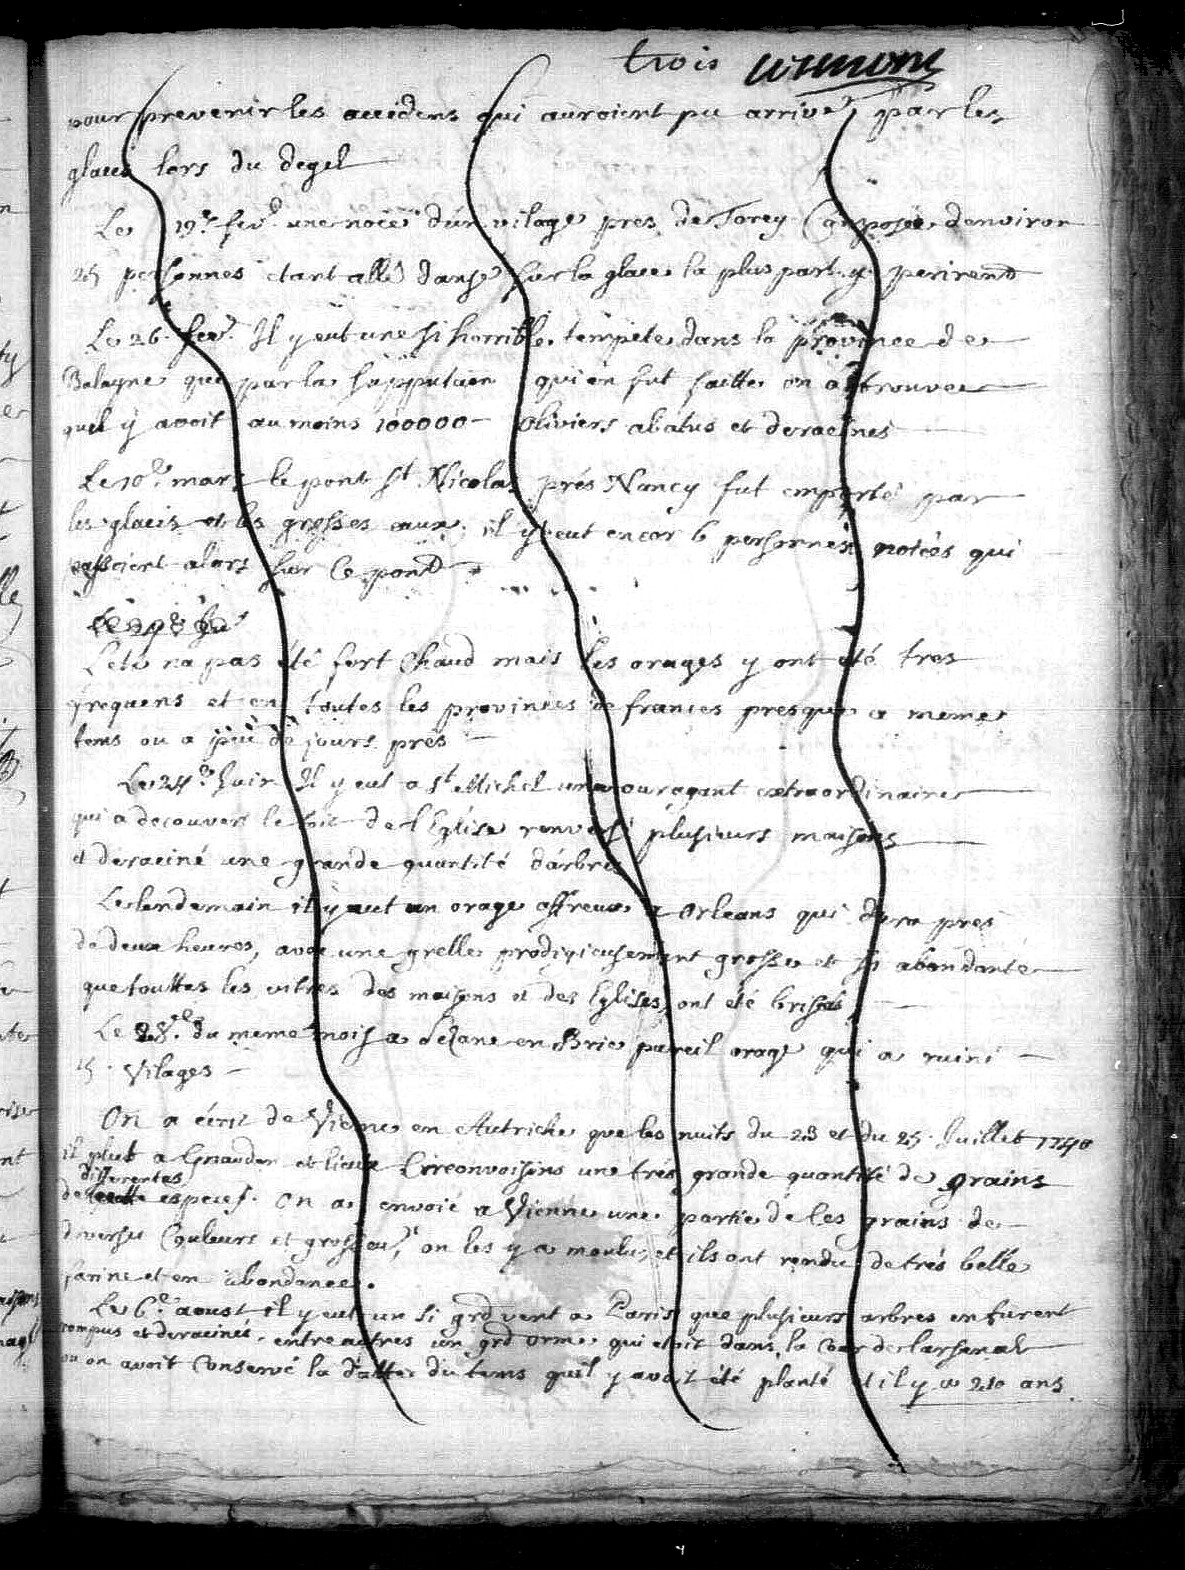 trois
pour prevenir les accidens qui auroient pu arriver par les
glaces lors du degel
Le 19e. fevr. une noce d'un vilage pres de Torcy Composée denviron
25 personnes etant allé danser sur la glace la plus part y perirent
Le 26. fevr. Il y eut une si horrible tempete dans la province de
Balayne que par la supputaion qui en fut faitte on a trouvee
quil y avoit au moins 100000 - Oliviers abatus et deracinés
Le 10e. mars le pont St. Nicolas prés Nancy fut emporté par
les glacis et les grosses eaux, il y eut encor 6 personnes noiées qui
passoient alors sur ce pont
L'eté na pas été fort Chaud mais les orages y ont été tres
frequens et en toutes les provinces de frances presque a meme
tems ou a peu de jours prés
Le 24e. Juin Il y eut a St. Michel un ouragant extraordinaire
qui a decouvert le toit de l'Eglise renversé plusieurs maisons
et deraciné une grande quantité d'arbres
Le lendemain il y eut un orage affreux a Orleans qui dura pres
de deux heures, avec une grelle prodigieusement grosse et si abondante
que touttes les vitres des maisons et des Eglises, ont été brisées
Le 28.e du meme mois a Sezane en Brie pareil orage qui a ruiné
15. Vilages
On a écrit de Vienne en Autriche que les nuits du 23 et du 25. Juillet 1740
il plut a et lieux Circonvoisins une trés grande quantité de grains
differentes
de especes. On a envoié a Vienne une partie de ces grains de
diverses Couleurs et grosseur, on les y a moulus, et ils ont rendu de trés belle
farine et en abondance.
Le 6e. aoust il y eut un si grd vent a Paris que plusieurs arbres en furent
rompus et deracinés. entre autres un grd orme qui etoit dans la Cour de larsenal
ou on avoit Conservé la datte du tems quil y avoit été planté il y a 210 ans